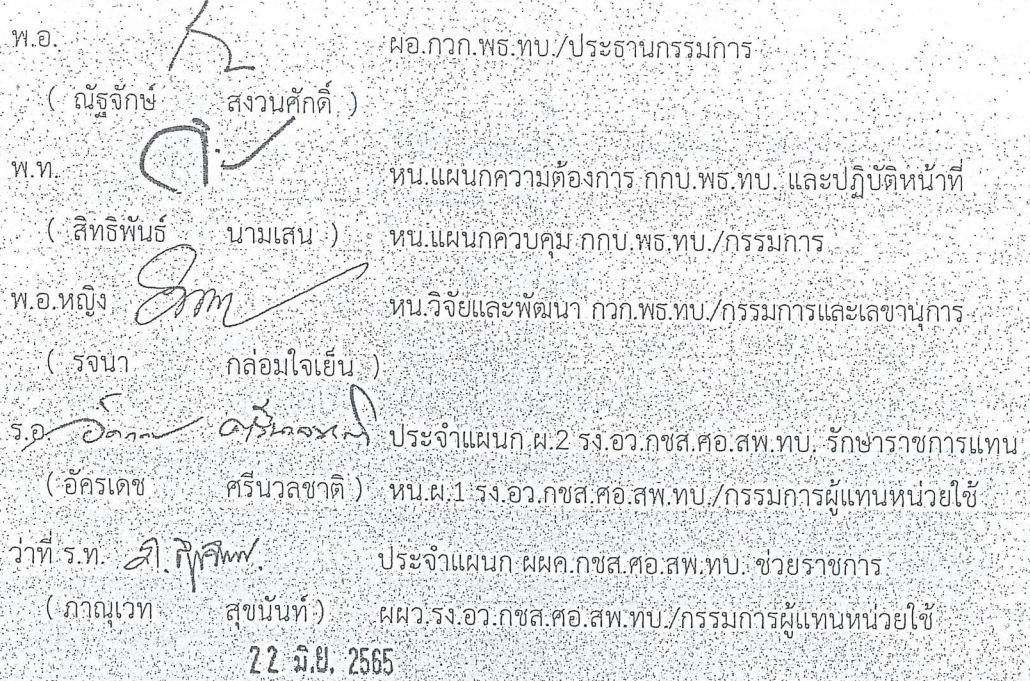 พ.อ. ผอ.กวก.พธ.ทบ./ประธานกรรมการ
( ณัฐจักษ์ สงวนศักดิ์ )
พ.ท. หน.แผนกความต้องการ กกบ.พธ.ทบ. และปฏิบัติหน้าที่
( สิทธิพันธ์ นามเสน ) หน.แผนกควบคุม กกบ.พธ.ทบ./กรรมการ
พ.อ.หญิง หน.วิจัยและพัฒนา กวก.พธ.ทบ./กรรมการและเลขานุการ
( รจนา กล่อมใจเย็น )
ร.อ. ประจำแผนก ผ.2 รง.อว.กชส.ศอ.สพ.ทบ. รักษาราชการแทน
( อัครเดช ศรีนวลชาติ ) หน.ผ.1 รง.อว.กชส.ศอ.สพ.ทบ./กรรมการผู้แทนหน่วยใช้
ว่าที่ ร.ท. ประจำแผนก ผผค.กชส.ศอ.สพ.ทบ. ช่วยราชการ
( ภาณุเวท สุขนันท์ ) ผผว.รง.อว.กชส.ศอ.สพ.ทบ./กรรมการผู้แทนหน่วยใช้
22 มิ.ย. 2565